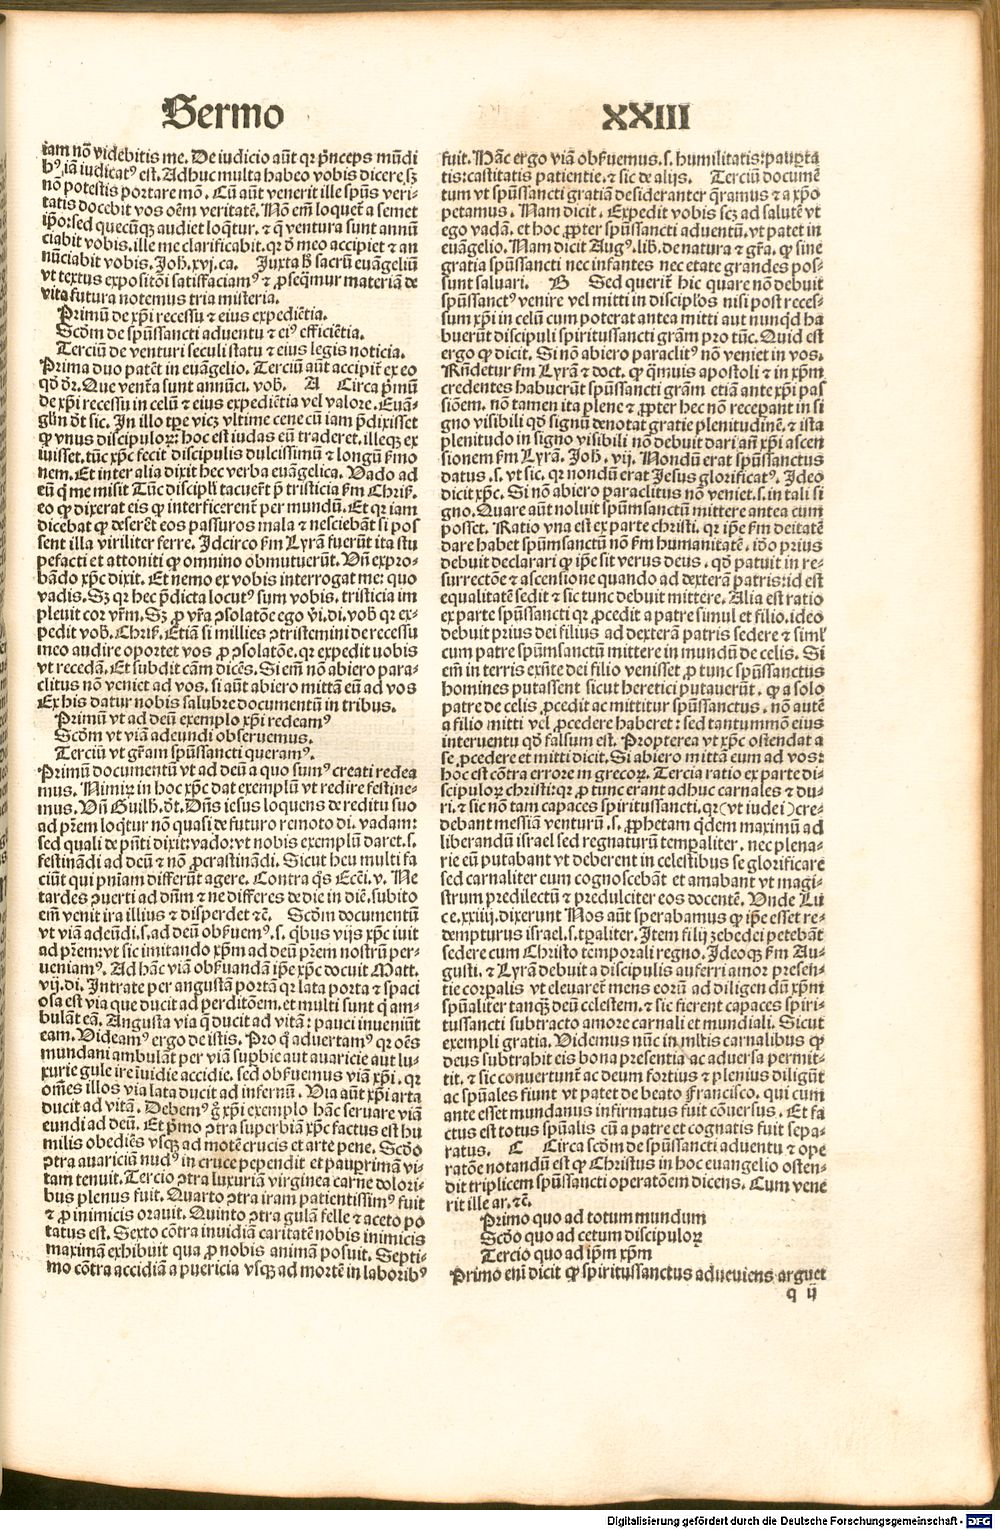 Sermo XXIII
iam nō videbitis me. De iudicio aūt qr p̄nceps mūdi
hꝰ iā iudicatꝰ est. Adhuc multa habeo vobis dicere sꝫ
nō potestis portare mō. Cū aūt venerit ille spūs veri-
tatis docebit vos oēm veritatē. Nō em̄ loquet̄ a semet
ipō: sed quecūqꝫ audiet loq̄tur. ⁊ q̄ ventura sunt annū
ciabit vobis. ille me clarificabit. qr d̄ meo accipiet ⁊ an
nūciabit vobis. Joh. xvj. ca. Juxta h̄ sacrū euāgeliū
vt textus expositōi satisfaciamꝰ ⁊ ꝓseq̄mur materiā de
vita futura notemus tria misteria.
Primū de xp̄i recessu ⁊ eius expediētia.
Scd̄m de spūssancti aduentu ⁊ eiꝰ efficiētia.
Terciū de venturi seculi statu ⁊ eius legis noticia.
Prima duo patēt in euāgelio. Terciū aūt accipit̄ ex eo
qd̄ dr̄. Que vent̄a sunt annūci. vob. A Circa p̄mū
de xp̄i recessu in celū ⁊ eius expediētia vel valore. Euā-
gl̄in dt̄ sic. In illo tp̄re vicꝫ vltime cene cū iam p̄dixisset
ꝙ vnus discipuloꝝ: hoc est iudas eū traderet. illeqꝫ ex
iuisset. tūc xp̄c fecit discipulis dulcissimū ⁊ longū ẜmo
nem. Et inter alia dixit hec verba euāgelica. Vado ad
eū q̄ me misit Tūc discipl̄i tacuer̄t p̄ tristicia ẜm Chriẜ.
eo ꝙ dixerat eis ꝙ interficerent per mundū. Et qr iam
dicebat ꝙ deserēt eos passuros mala ⁊ nesciebāt si pos
sent illa viriliter ferre. Idcirco ẜm Lyrā fuerūt ita stu
pefacti et attoniti ꝙ omnino obmutuerūt. Vn̄ expro-
bādo xp̄c dixit. Et nemo ex vobis interrogat me: quo
vadis. Sꝫ qr hec p̄dicta locutꝰ sum vobis. tristicia im
pleuit cor vr̄m. Sꝫ ꝓ vr̄a ꝯsolatōe ego vi. di. vob̄ qr ex-
pedit vob̄. Chriẜ. Etiā si millies ꝯtristemini de recessu
meo audire oportet vos ꝓ ꝯsolatōe. qr expedit uobis
vt recedā. Et subdit cām dicēs. Si em̄ nō abiero para-
clitus nō veniet ad vos. si aūt abiero mittā eū ad vos
Ex his datur nobis salubre documentū in tribus.
Primū vt ad deū exemplo xp̄i redeamꝰ
Scd̄m vt viā adeundi obseruemus.
Terciū vt gr̄am spūssancti queramꝰ.
Primū documentū vt ad deū a quo sumꝰ creati redea
mus. Nimiꝝ in hoc xp̄c dat exemplū vt redire festine-
mus. Vn̄ Guilh. dt̄. Dn̄s iesus loquens de reditu suo
ad pr̄em loq̄tur nō quasi de futuro remoto di. vadam:
sed quali de pn̄ti dixit: vado: vt nobis exemplū daret. s.
festinādi ad deū ⁊ nō ꝓcrastinādi. Sicut heu multi fa
ciūt qui pn̄iam differūt agere. Contra q̄s Ecc̄i. v. Ne
tardes ꝯuerti ad dn̄m ⁊ ne differes de die in diē. subito
em̄ venit ira illius ⁊ disperdet ⁊c̄. Scd̄m documentū
vt viā adeūdi. s. ad deū obẜuemꝰ. s. q̄bus vijs xp̄c iuit
ad pr̄em: vt sic imitando xp̄m ad deū pr̄em nostrū per-
ueniamꝰ. Ad hāc viā obẜuandā ip̄e xp̄c docuit Matt.
vij. di. Intrate per angustā portā qr lata porta ⁊ spaci
osa est via que ducit ad perditōem. et multi sunt q̄ am-
bulāt eā. Angusta via q̄ ducit ad vitā: pauci inueniūt
eam. Videamꝰ ergo de istis. Pro q̄ aduertamꝰ qr oēs
mundani ambulāt per viā supbie aut auaricie aut lu-
xurie gule ire īuidie accidie. sed obẜuemus viā xp̄i. qr
om̄es illos via lata ducit ad infernū. Via aūt xp̄i arta
ducit ad vitā. Debemꝰ g̊ xp̄i exemplo hāc seruare viā
eundi ad deū. Et p̄mo ꝯtra superbiā xp̄c factus est hu
milis obediēs vsqꝫ ad mortē crucis et arte pene. Scd̄o
ꝯtra auariciū nudꝰ in cruce pependit et pauꝑrimā vi-
tam tenuit. Tercio ꝯtra luxuriā virginea carne dolori-
bus plenus fuit. Quarto ꝯtra iram patientissimꝰ fuit
⁊ ꝓ inimicis orauit. Quinto ꝯtra gulā felle ⁊ aceto po
tatus est. Sexto cōtra inuidiā caritatē nobis inimicis
maximā exhibuit qua ꝓ nobis animā posuit. Septi-
mo cōtra accidiā a puericia vsqꝫ ad mortē in laboribꝰ
fuit. Hāc ergo viā obẜuemus. s. humilitatis: pauꝑta
tis: castitatis patientie. ⁊ sic de alijs. Terciū documē
tum vt spūssancti gratiā desideranter q̄ramus ⁊ a xp̄o
petamus. Nam dicit. Expedit vobis scꝫ ad salutē vt
ego vadā. et hoc ꝓpter spūssancti aduentū. vt patet in
euāgelio. Nam dicit Augꝰ. lib. de natura ⁊ gr̄a. ꝙ sine
gratia spūssancti nec infantes nec etate grandes pos-
sunt saluari. B Sed querit̄ hic quare nō debuit
spūssanctꝰ venire vel mitti in discipl̄os nisi post reces-
sum xp̄i in celū cum poterat antea mitti aut nunqd̄ ha
buerūt discipuli spiritussancti gr̄am pro tūc. Quid est
ergo ꝙ dicit. Si nō abiero paraclitꝰ nō veniet in vos.
Rn̄detur ẜm Lyrā ⁊ doct. ꝙ q̄muis apostoli ⁊ in xp̄m
credentes habuerūt spūssancti grām etiā ante xp̄i pas
siōem. nō tamen ita plene ⁊ ꝓpter hec nō receꝑant in si
gno visibili qd̄ signū denotat gratie plenitudinē. ⁊ ista
plenitudo in signo visibili nō debuit dari an̄ xp̄i ascen
sionem ẜm Lyrā. Joh. vij. Nondū erat spūssanctus
datus. s. vt sic. qr nondū erat Jesus glorificatꝰ. Ideo
dicit xp̄c. Si nō abiero paraclitus nō veniet. s. in tali si
gno. Quare aūt noluit spūmsanctū mittere antea cum
posset. Ratio vna est ex parte christi. qr ip̄e ẜm deitatē
dare habet spūmsanctū nō ẜm humanitatē. iō̄ prius
debuit declarari ꝙ ip̄e sit verus deus. qd̄ patuit in re-
surrectōe ⁊ ascensione quando ad dexterā patris: id est
equalitatē sedit ⁊ sic tunc debuit mittere. Alia est ratio
ex parte spūssancti qr ꝓcedit a patre simul et filio. ideo
debuit prius dei filius ad dexterā patris sedere ⁊ siml̄
cum patre spūmsanctū mittere in mundū de celis. Si
em̄ in terris exn̄te dei filio venisset ꝓ tunc spūssanctus
homines putassent sicut heretici putauerūt. ꝙ a solo
patre de celis ꝓcedit ac mittitur spūssanctus. nō autē
a filio mitti vel ꝓcedere haberet: sed tantummō eius
interuentu qd̄ falsum est. Propterea vt xp̄c ostendat a
se ꝓcedere et mitti dicit. Si abiero mittā eum ad vos:
hoc est cōtra errorē in grecoꝝ. Tercia ratio ex parte di-
scipuloꝝ christi: qr ꝓ tunc erant adhuc carnales ⁊ du-
ri. ⁊ sic nō tam capaces spiritussancti. qr (vt iudei) cre-
debant messiā venturū. s. ꝓphetam q̄dem maximū ad
liberandū israel sed regnaturū tempaliter. nec plena-
rie eū putabant vt deberent in celestibus se glorificare
sed carnaliter eum cognoscebāt et amabant vt magi-
strum predilectū ⁊ predulciter eos docentē. Vnde Lu
ce. xxiiij. dixerunt Nos aūt sperabamus ꝙ ip̄e esset re-
dempturus israel. s. tp̄aliter. Item filij zebedei petebāt
sedere cum Christo temporali regno. Ideoqꝫ ẜm Au-
gusti. ⁊ Lyrā debuit a discipulis auferri amor presen-
tie corꝑalis vt eleuaret mens eorū ad diligendū xp̄m
spūaliter tanqꝫ deū celestem. ⁊ sic fierent capaces spiri-
tussancti subtracto amore carnali et mundiali. Sicut
exempli gratia. Videmus nūc in ml̄tis carnalibus ꝙ
deus subtrahit eis bona presentia ac aduersa permit-
tit. ⁊ sic conuertunt̄ ac deum fortius ⁊ plenius diligūt
ac spūales fiunt vt patet de beato Francisco. qui cum
ante esset mundanus infirmatus fuit cōuersus. Et fa
ctus est totus spūalis cū a patre et cognatis fuit sepa-
ratus. C Circa scd̄m de spūssancti aduentu ⁊ ope
ratōe notandū est ꝙ Christus in hoc euangelio osten-
dit triplicem spūssancti operatōem dicens. Cum vene
rit ille ar. ⁊c̄.
Primo quo ad totum mundum
Scd̄o quo ad cetum discipuloꝝ
Tercio quo ad ip̄m xp̄m
Primo eni dicit ꝙ spiritussanctus adueuiens arguet
q ij
Digitalisierung gefördert durch die Deutsche Forschungsgemeinschaft - DFG